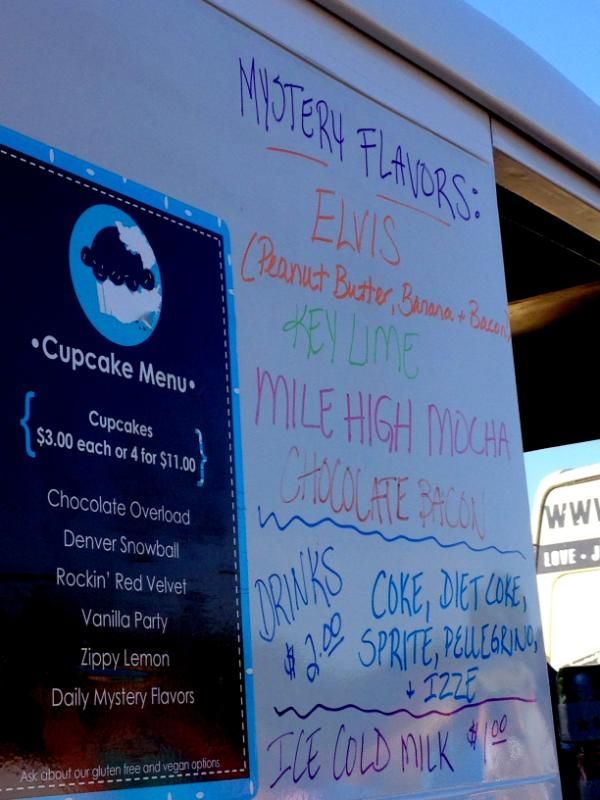 MYSTERY FLAVORS:
ELVIS
(Peanut Butter, Banana + Bacon)
KEY LIME
MILE HIGH MOCHA
CHOCOLATE BACON
DRINKS
$2.00
COKE, DIET COKE,
SPRITE, PELLEGRINO,
+ IZZE
ICE COLD MILK $1.00
•Cupcake Menu•
Cupcakes
$3.00 each or 4 for $11.00
Chocolate Overload
Denver Snowball
Rockin' Red Velvet
Vanilla Party
Zippy Lemon
Daily Mystery Flavors
Ask about our gluten free and vegan options
LOVE • J